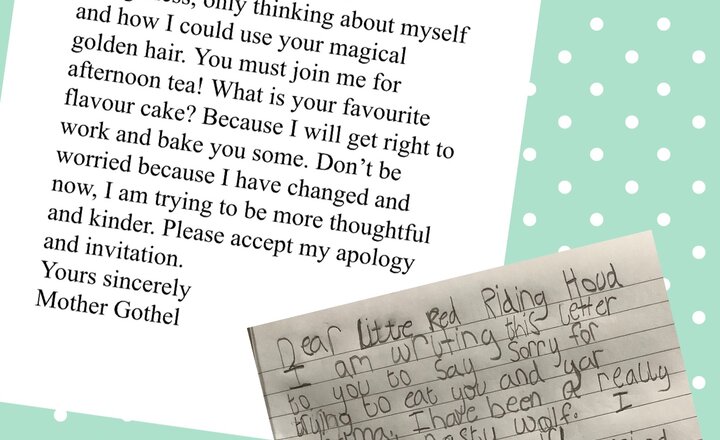 only thinking about myself
and how I could use your magical
golden hair. You must join me for
afternoon tea! What is your favourite
flavour cake? Because I will get right to
work and bake you some. Don't be
worried because I have changed and
now, I am trying to be more thoughtful
and kinder. Please accept my apology
and invitation.
Yours sincerely
Mother Gothel
Dear Little Red Riding Houd
I am writing this letter
to you to say sorry for
trying to eat you and yar
I have been a really
wolf. I